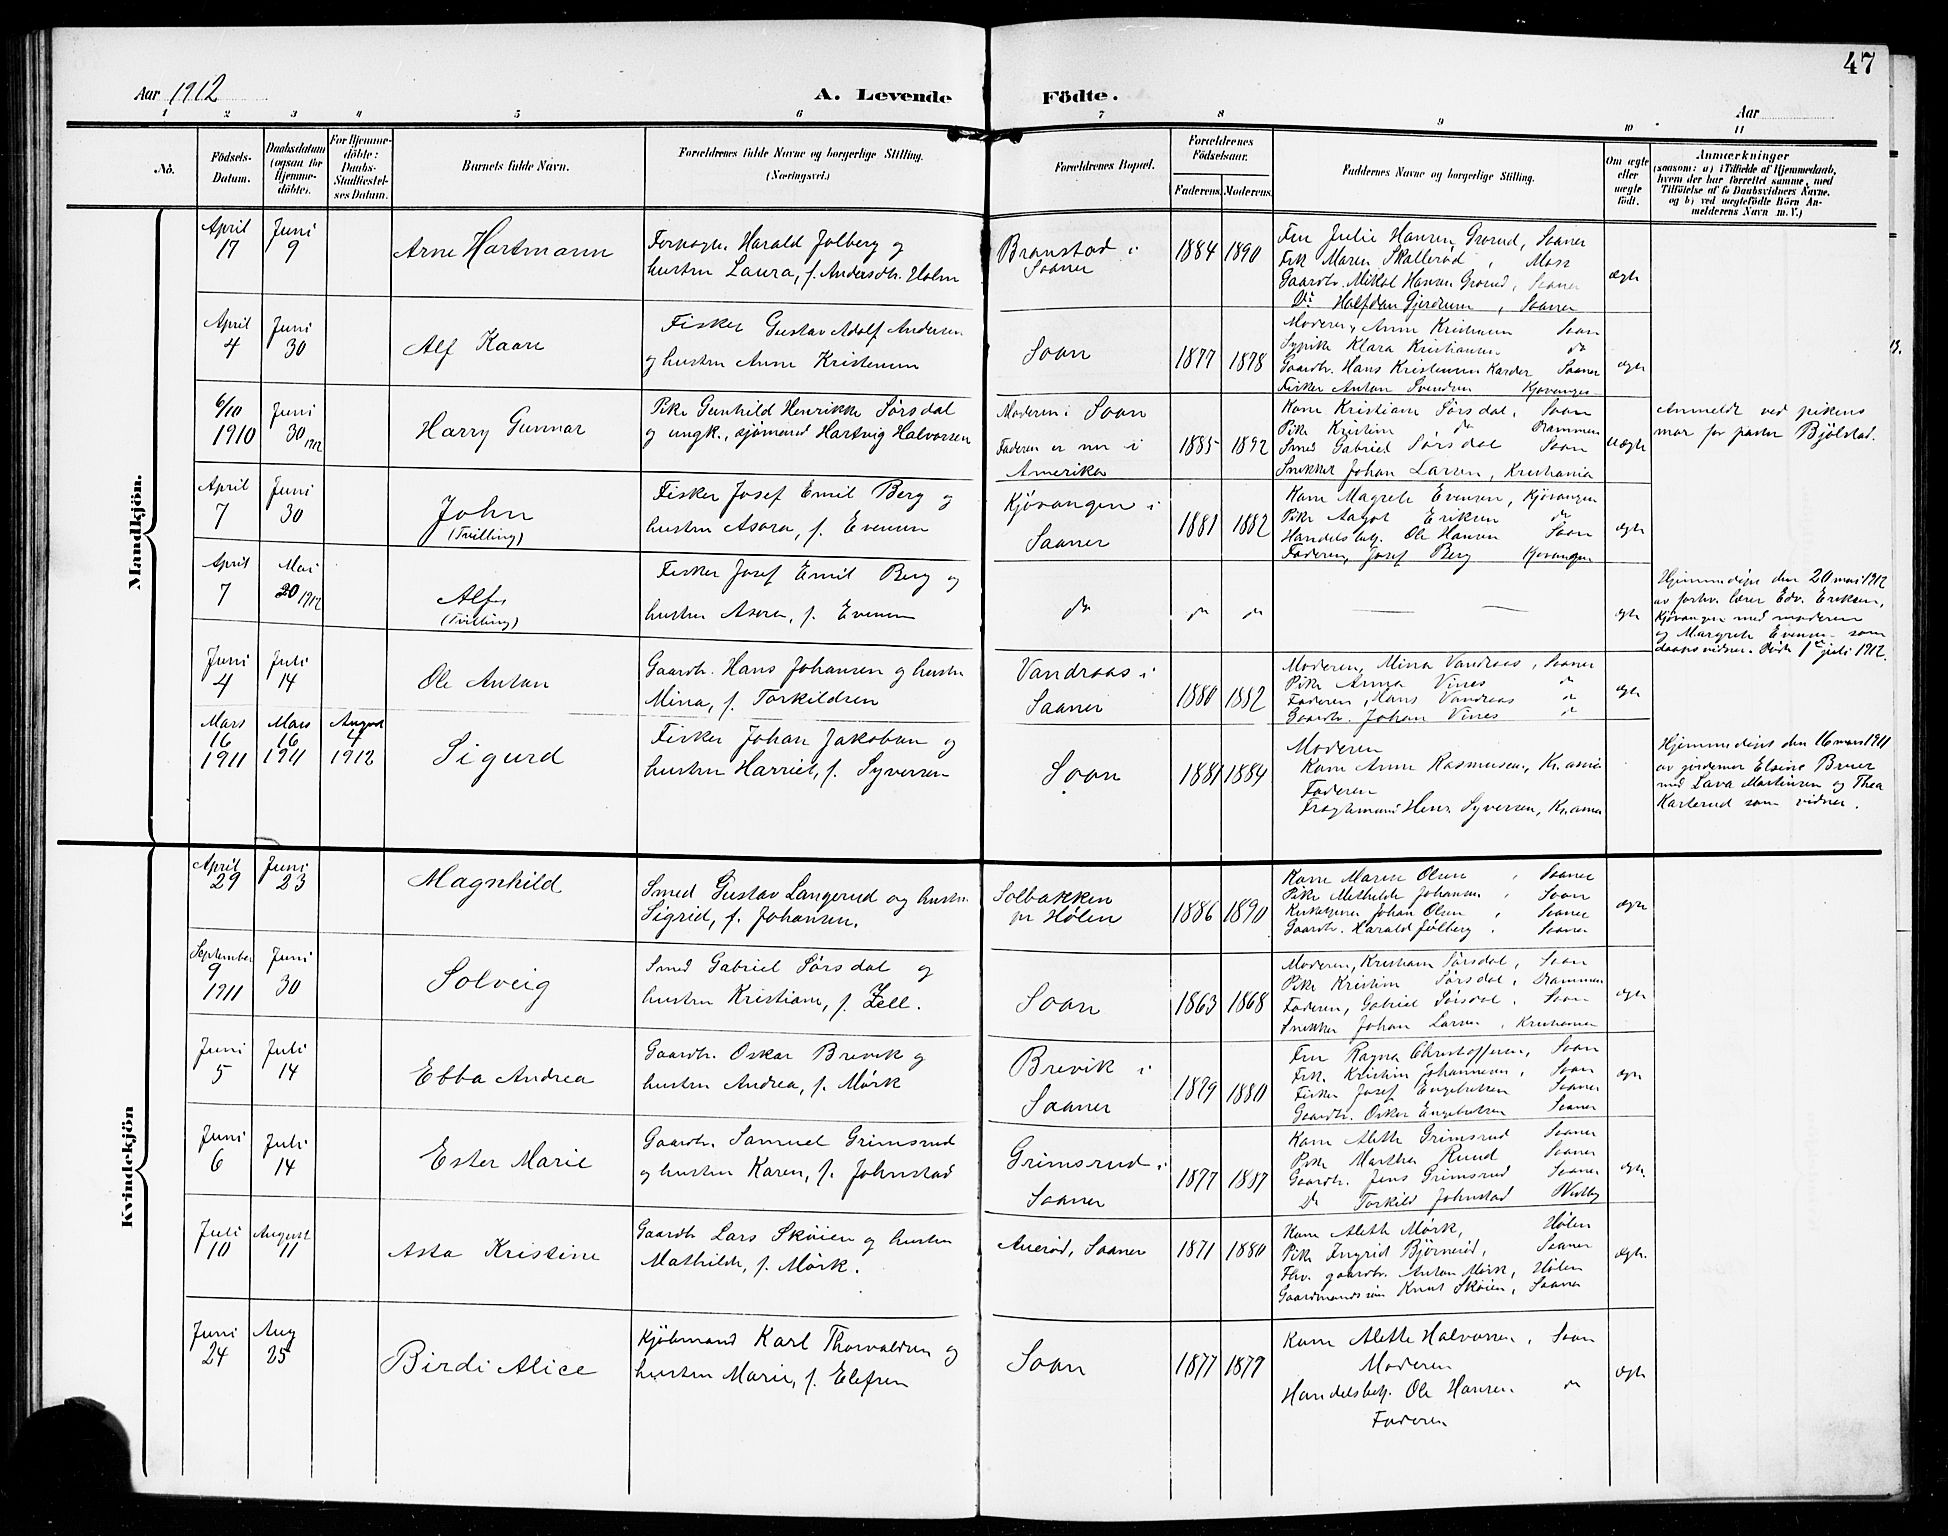 47
Aar 1912
A. Levende
Födte.
Aar
1 2 3 4 5 6 7 8 9 10 11
No.
Födsels-
Datum.
Daabsdatum
(ogsaa for
Hjemme-
döbte).
For Hjemme-
döbte:
Daabs-
Stadfæstel-
ses Datum.
Barnets fulde Navn.
Forældrenes fulde Navne og borgerlige Stilling.
(Næringsvei.)
Forældrenes Bopæl.
Forældrenes
Födselsaar.
Faderens. Moderens.
Faddernes Navne og borgerlige Stilling.
Om ægte
eller
uægte
födt.
Anmærkninger
(saasom: a) i Tilfælde af Hjemmedaab,
hvem der har forrettet samme, med
Tilföielse af to Daabsvidners Navne.
og b) ved uægtefödte Börn An-
melderens Navn m. V.)
Mandkjön.
April
17
Juni
9
Arne Hartmann
Harald Jølberg og
hustru Laura, f. Andersdtr. Holm
Branstad i
Saaner
1884 1890
Fru Julie Hansen, Grorud, Saaner
Frk Maren Skallerød, Moss
Gaardbr. Mikal Hansen Grorud, Saaner
Do Halfdan Gjerdrum, Saaner
ægte
April
4
Juni
30
Alf Kaare
Fisker Gustav Adolf Andersen
og hustru Anne Kristensen
Soon
1877 1878
Moderen, Anne Kristensen Soon
Sypike Klara Kristiansen do
Gaardbr. Hans Kristensen Saaner
Fisker Anton Svendsen Kjøvangen
ægte
6/10
1910
Juni
30 1912
Harry Gunnar
Pike Gunhild Henrikke Sørsdal
og ungk., sjømand Hartvig Halvorsen
Moderen i Soon
Faderen er nu i
Amerika
1885 1892
Kone Kristiane Sørsdal, Soon
Pike Kristine do Drammen
Smed Gabriel Sørsdal Soon
Snekker Johan Larsen, Kristiania
uægte
Anmeldt ved pikens
mor for pastor Bjølstad.
April
7
Juni
30
John
(Tvilling)
Fisker Josef Emil Berg og
hustru Asora, f. Evensen
Kjøvangen i
Saaner
1881 1882
Kone Magrete Evensen, Kjøvangen
Pike Aagot Eriksen do
Handelsbetj. Ole Hansen Soon
Faderen, Josef Berg Kjøvangen
ægte
April
7
Mai
20 1912
Alf
(Tvilling)
Fisker Josef Emil Berg og
hustru Asora, f. Evensen
do
do do
ægte
Hjemmedøpt den 20 mai 1912
av forhv. lærer Edv. Eriksen,
Kjøvangen med moderen
og Margrete Evensen som
daapsvidner. Døde 1ste juli 1912.
Juni
4
Juli
14
Ole Anton
Gaardbr. Hans Johansen og hustru
Mina, f. Torkildsen
Vandraas i
Saaner
1880 1882
Moderen, Mina Vandraas, Saaner
Pike Anna Vines do
Faderen, Hans Vandraas do
Gaardbr. Johan Vines do
ægte
Mars
16
1911
Mars
16
1911
August
4
1912
Sigurd
Fisker Johan Jakobsen og
hustru Harriet, f. Syversen
Soon
1881 1884
Moderen
Kone Anne Rasmussen, Kr.ania
Faderen
Henr. Syversen, Kr.ania
Hjemmedøpt den 16 mars 1911
av jordemor Elsine Bruer
med Lava Martinsen og Thea
Karlsrud som vidner.
Kvindekjön
April
29
Juni
23
Magnhild
Smed Gustav Langerud og hustru
Sigrid, f. Johansen.
Solbakken
pr Hølen
1886 1890
Kone Maren Olsen, Saaner
Pike Methilde Johansen, Soon
Kirketjener Johan Olsen, Saaner
Gaardbr. Harald Jølberg, Saaner
ægte
September
9
1911
Juni
30
Solveig
Smed Gabriel Sørsdal og
hustru Kristiane, f. Zell.
Soon
1863 1868
Moderen, Kristiane Sørsdal, Soon
Pike Kristine Sørsdal, Drammen
Faderen, Gabriel Sørsdal, Soon
Snekker Johan Larsen, Kristiania
ægte
Juni
5
Juli
14
Ebba Andrea
Gaardbr. Oskar Brevik og
hustru Andrea, f. Mørk
Brevik i
Saaner
1879 1880
Fru Ragna Christoffersen, Soon
Frk. Kristine Johannesen, Soon
Fisker Josef Engebretsen Saaner
Gaardbr. Oskar Engebretsen Saaner
ægte
Juni
6
Juli
14
Ester Marie
Gaardbr. Samuel Grimsrud
og hustru Karen, f. Johnstad
Grimsrud i
Saaner
1877 1887
Kone Alette Grimsrud Saaner
Pike Martha Ruud Saaner
Gaardbr. Jens Grimsrud Saaner
Do Torkild Johnstad Vestby
ægte.
Juli
10
August
11
Asta Kristine
Gaardbr Lars Skøien og hustru
Mathilde, f. Mørk.
Auerød, Saaner
1871 1880
Kone Aleth Mørk, Hølen
Pike Ingrid Bjørnerød, Saaner
Fhv. gaardbr. Anton Mørk, Hølen
Gaardmandssøn Knut Skøien, Saaner
ægte.
Juni
24
Aug
25
Birdi Alice
Kjøbmand Karl Thorvaldsen og
hustru Marie, f. Elefsen
Soon
1877 1879
Kone Alette Halvorsen, Soon
Moderen
Handelsbetj. Ole Hansen do
Faderen
ægte